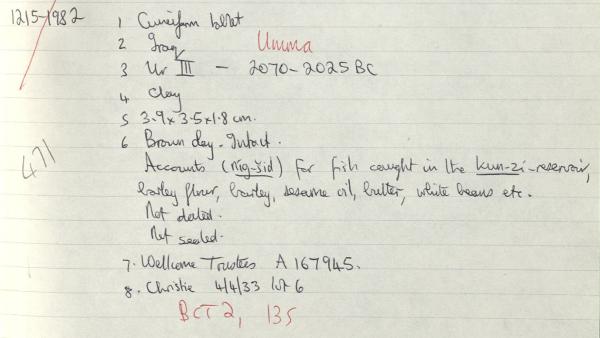 1215-1982
1 Cuneiform tablet
2 Iraq Umma
3 Ur III - 2070-2025 BC
4 Clay
5 3.9 x 3.5 x 1.8 cm.
6 Brown clay. Intact.
Accounts (nig-šid) for fish caught in the kun-zi-reservoir,
barley flour, barley, sesame oil, butter, white beans etc.
Not dated.
Not sealed.
471
7. Wellcome Trustees A 167945.
8. Christie 4/4/33 lot 6
BCT 2, 135